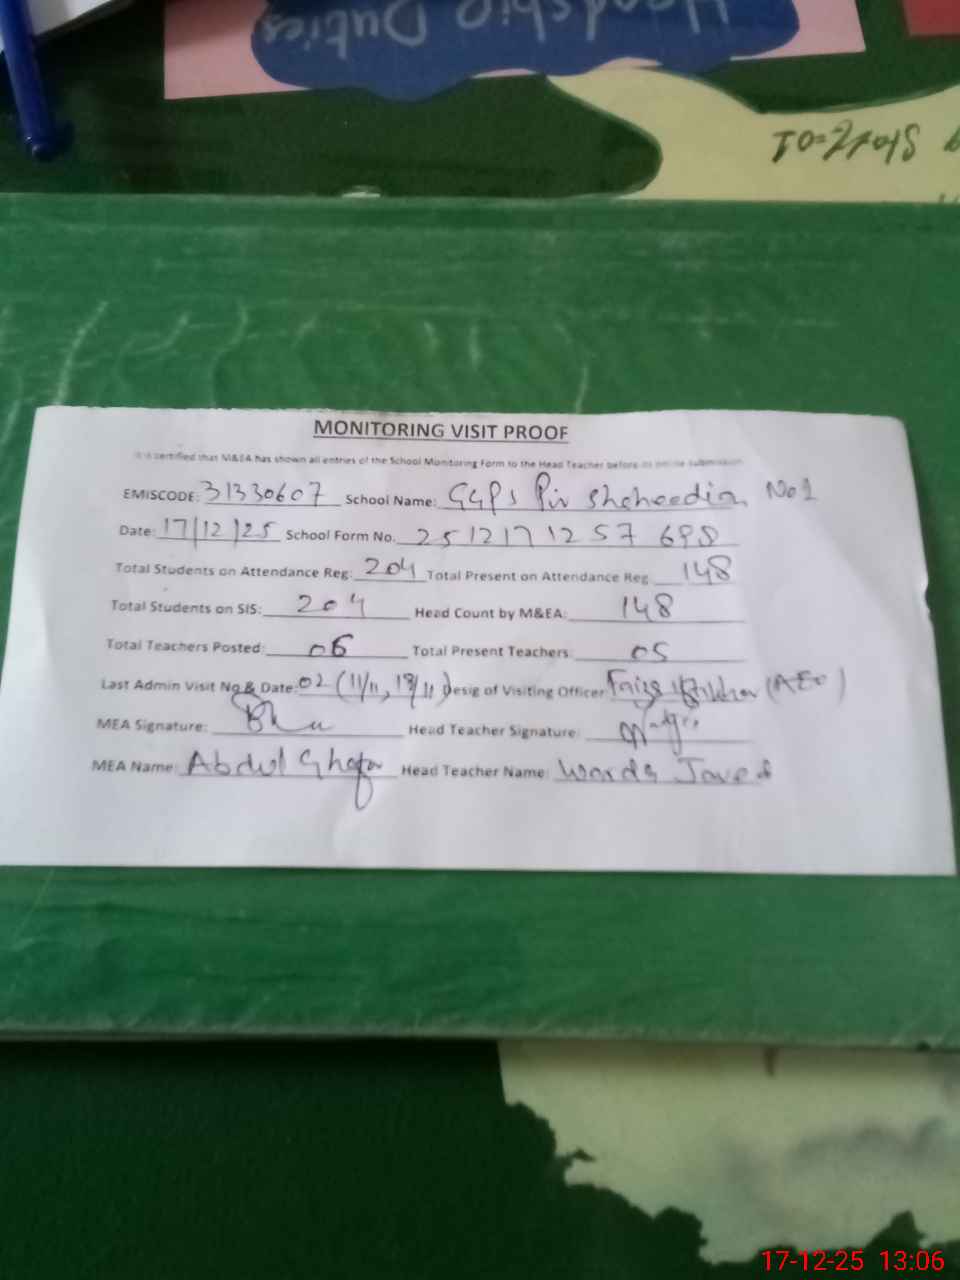 Headship Duties
TO=27018
MONITORING VISIT PROOF
It is certified that M&EA has shown all entries of the School Monitoring Form to the Head Teacher before its online submission
EMISCODE: 31330607 School Name: GGPS Pir Sheheedian No 1
Date: 17/12/25 School Form No. 2512171257698
Total Students on Attendance Reg: 204 Total Present on Attendance Reg 148
Total Students on SIS: 204 Head Count by M&EA: 148
Total Teachers Posted: 06 Total Present Teachers: 05
Last Admin Visit No & Date: 02 (11/11, 18/11) Desig of Visiting Officer (AEO)
MEA Signature: Head Teacher Signature:
MEA Name: Abdul Ghafar Head Teacher Name: Javed
17-12-25 13:06